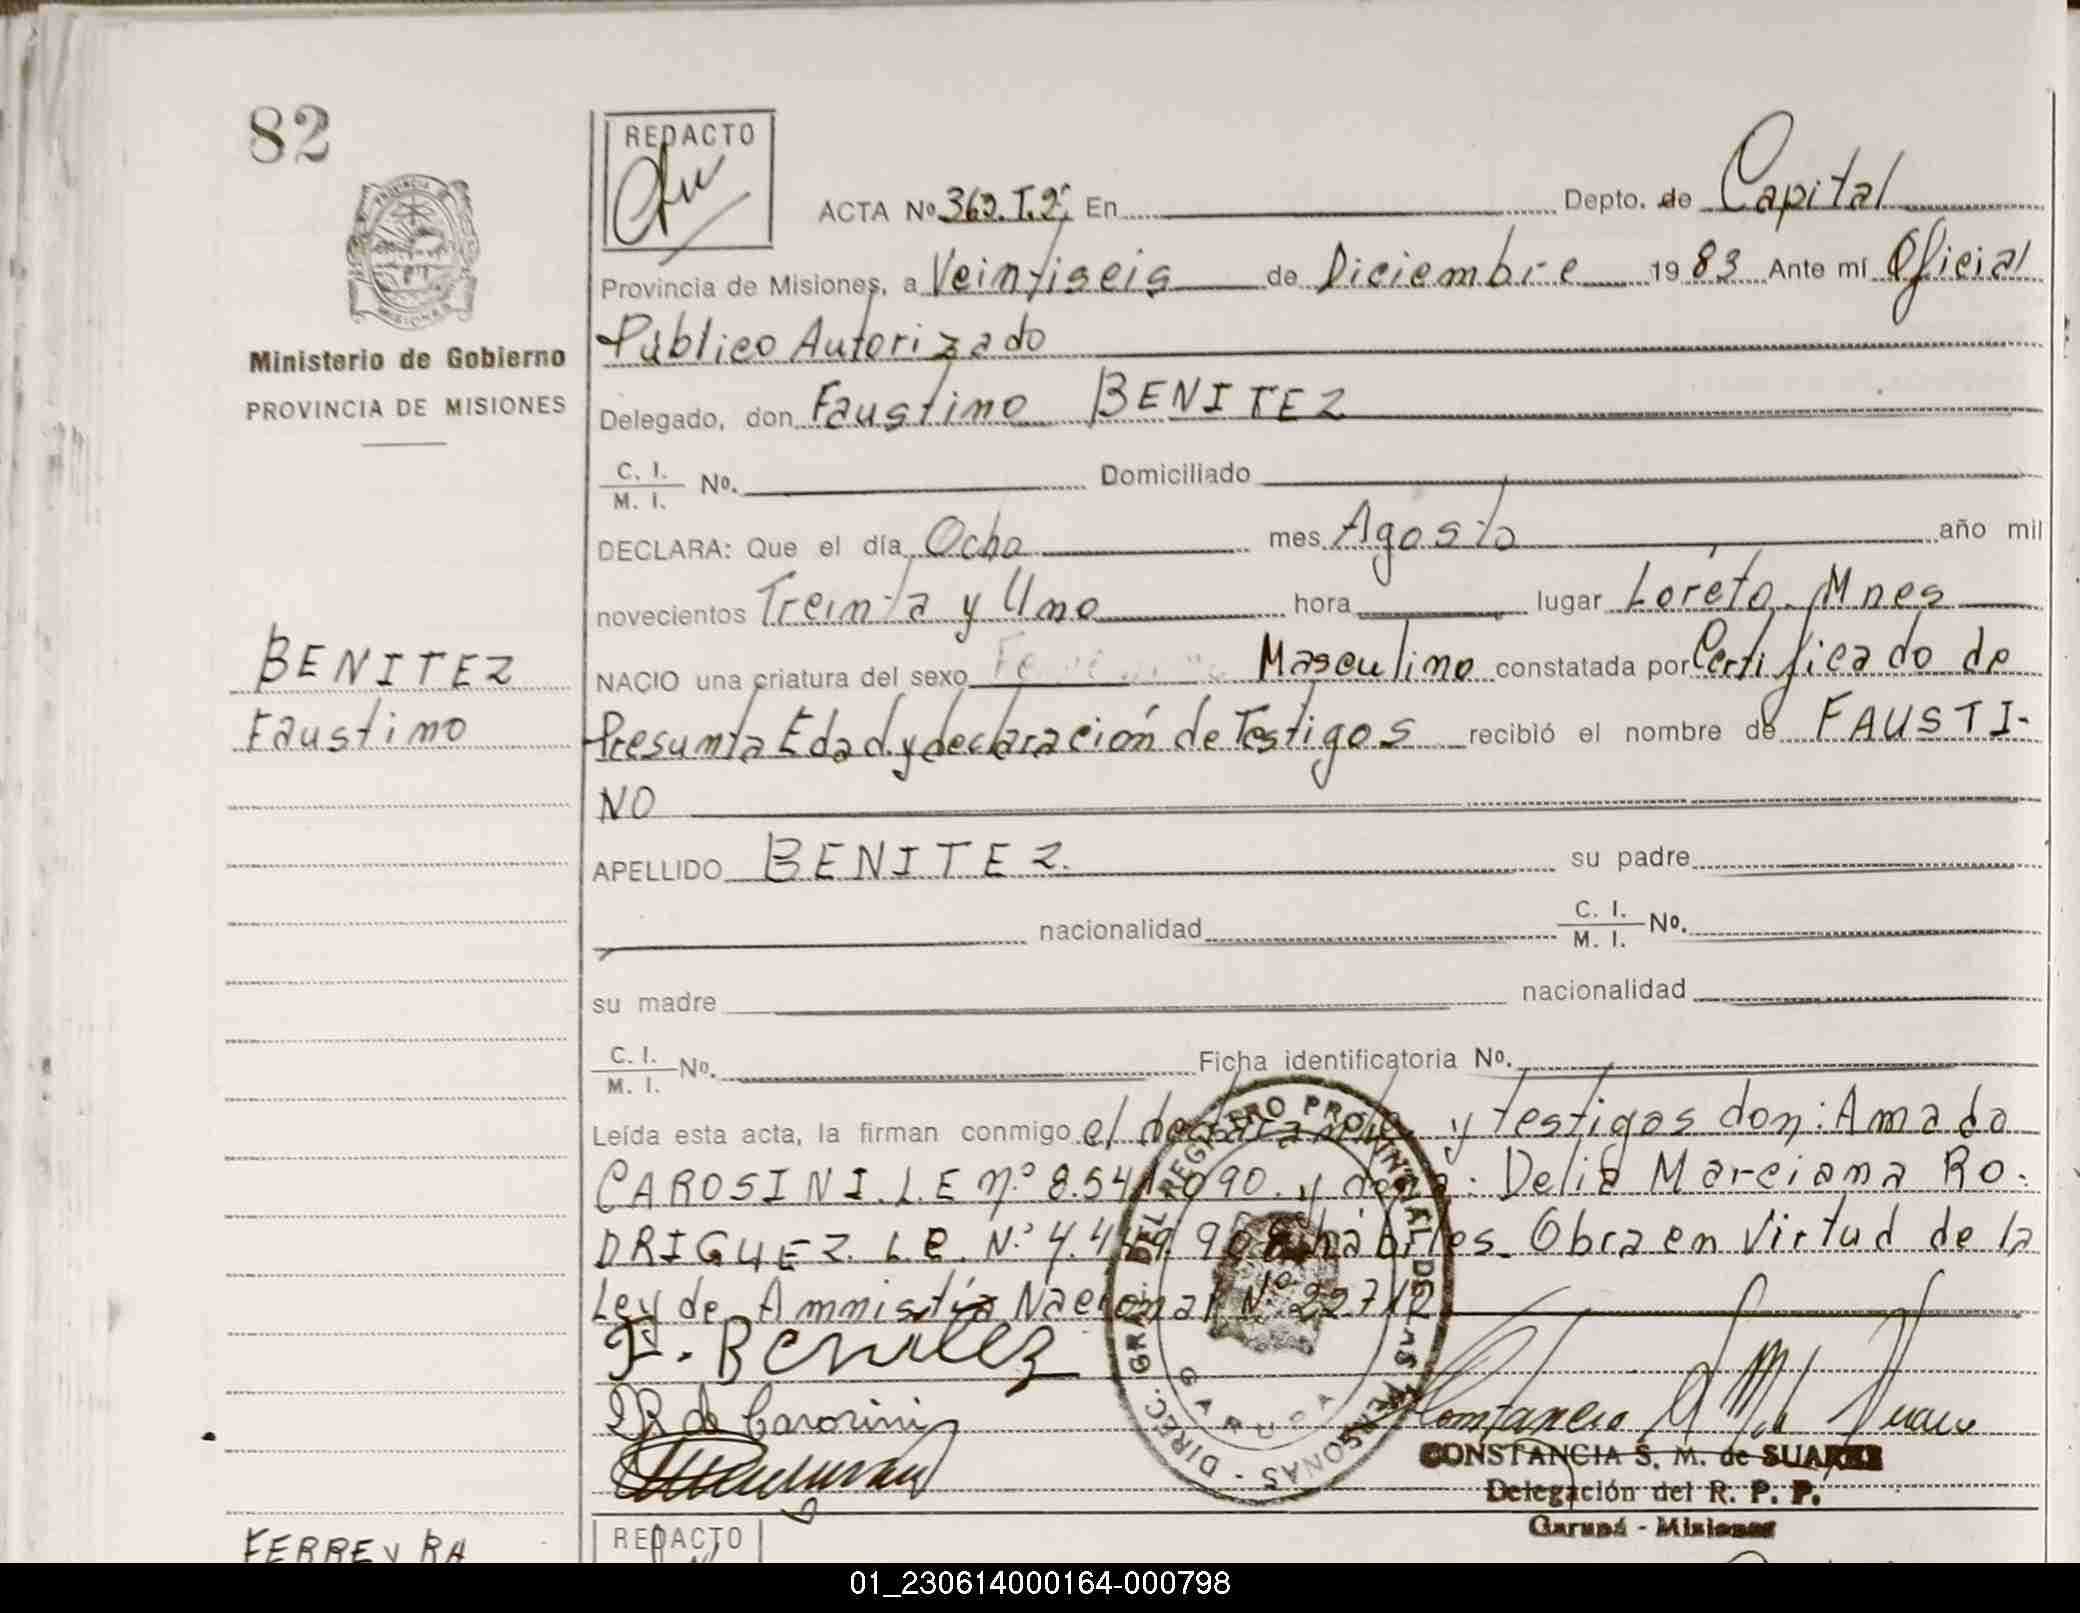 82
REDACTO
ACTA Nº 362. T. 2º, En Depto. de Capital
PROVINCIA
MISIONES
Provincia de Misiones, a Veintiseis de Diciembre 1983 Ante mí Oficial
Público Autorizado
Ministerio de Gobierno
PROVINCIA DE MISIONES
Delegado, don Faustino BENITEZ
C. I.
M. I. Nº. Domiciliado
DECLARA: Que el día Ocho mes Agosto año mil
novecientos Treinta y Uno hora lugar Loreto. Mnes
BENITEZ
Faustino
NACIO una criatura del sexo Masculino constatada por Certificado de
Presunta Edad y declaración de Testigos recibió el nombre de FAUSTI-
NO
APELLIDO BENITEZ. su padre
nacionalidad C. I.
M. I. Nº.
su madre nacionalidad
C. I.
M. I. Nº. Ficha identificatoria Nº.
Leída esta acta, la firman conmigo el declarante y testigos don: Amado
CAROSINI. L.E nº 8.541.090. y doña: Delia Marciana RO-
DRIGUEZ. L.C. Nº 4.449.908 hábiles. Obra en Virtud de la
Ley de Amnistía Nacional Nº 22712
F. Benitez
DR de Carosini
DIREC. GRAL. DEL REGISTRO PROVINCIAL DE LAS PERSONAS
GARUPA
CONSTANCIA S. M. de SUAREZ
Delegación del R. P. P.
Garupá - Misiones
FERREYRA
REDACTO
01_230614000164-000798